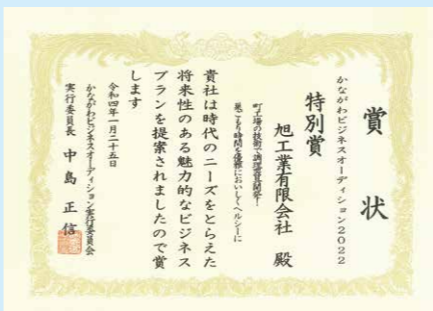 賞状
かながわビジネスオーディション2022
特別賞
旭工業有限会社 殿
町工場の技術で調理器具開発!
巣ごもり時間を優雅においしくヘルシーに
貴社は時代のニーズをとらえた
将来性のある魅力的なビジネス
プランを提案されましたので賞
します
令和四年一月二十五日
かながわビジネスオーディション実行委員会
実行委員長 中島 正信